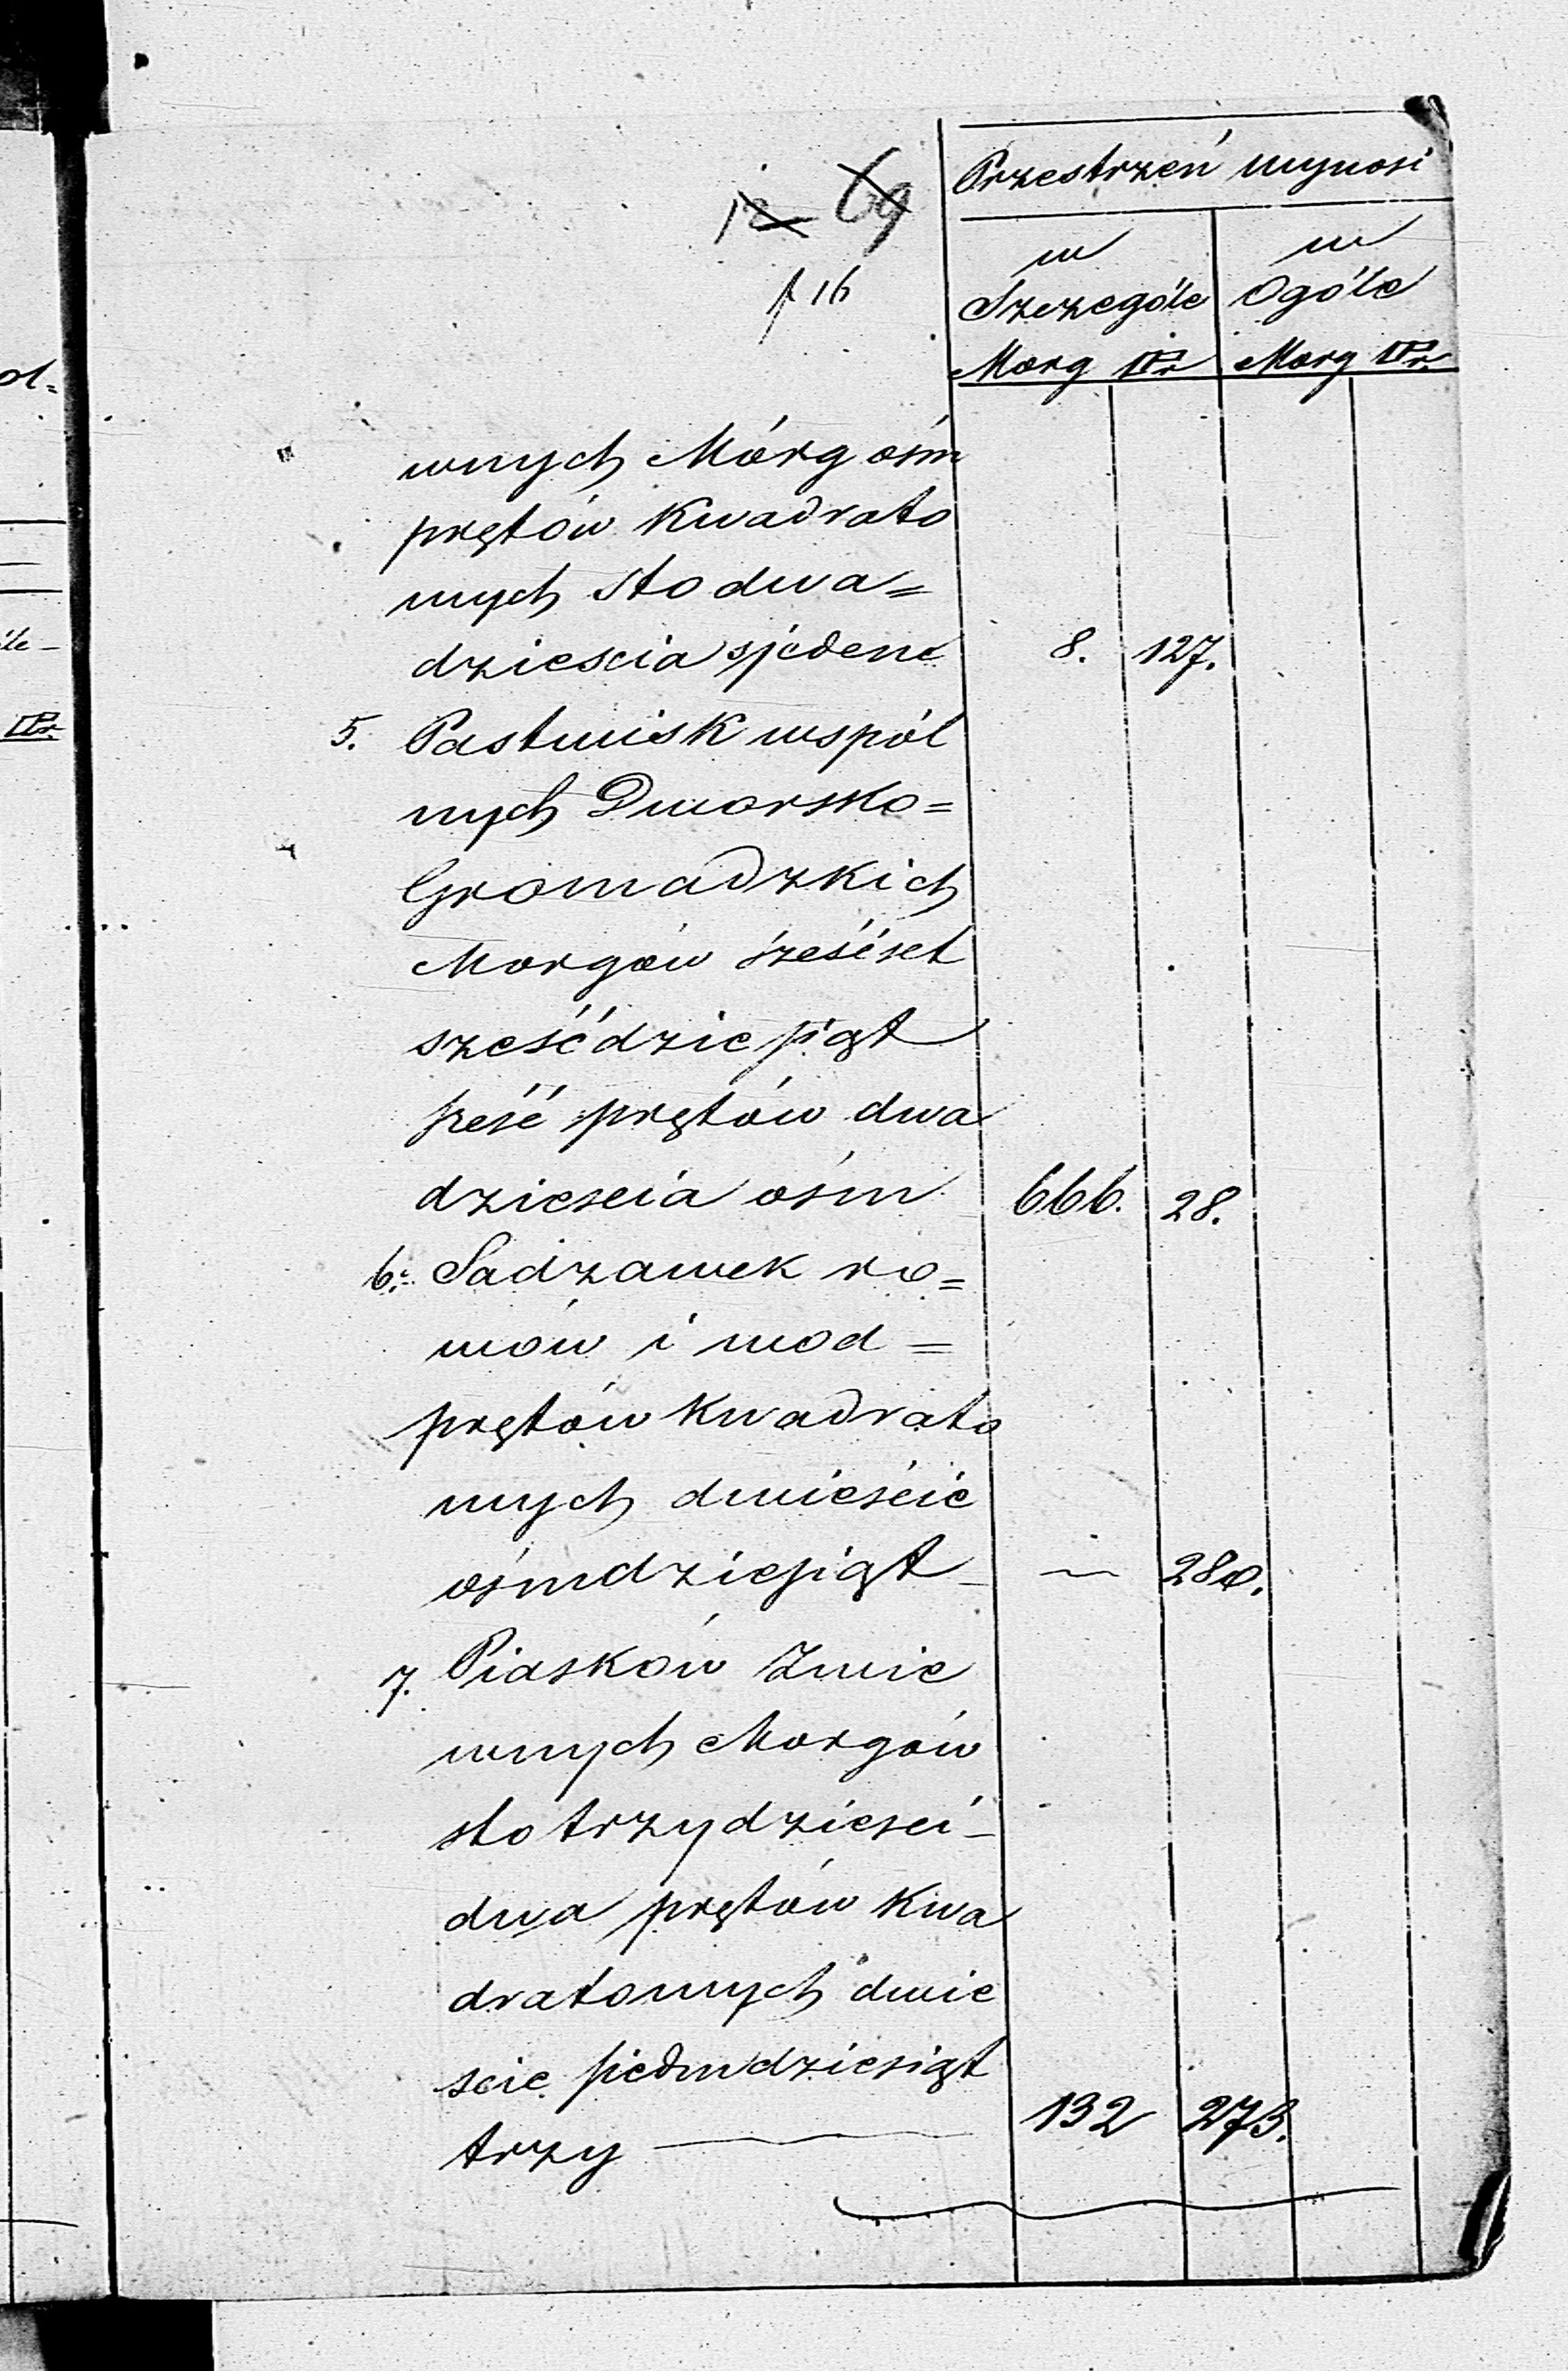 Przestrzeń wynosi
69
16
w w
Szczególe Ogóle
Morg □Pr Morg □Pr.
wnych Mórg ośm
prętów Kwadrato
wych sto dwa=
dziescia sjedem 8. 127.
5. Pastwisk wspól
nych Dworsko=
Gromadzkich
Morgów sześćset
sześćdziesiąt
sześć prętów dwa
dziescia ośm 666. 28.
6. Sadzawek ro=
wów i wod=
prętów Kwadrato
wych dwieście
ośmdziesiąt 280.
7. Piasków Zwie
wnych Morgów
sto trzydziesci
dwa prętów Kwa
dratowych dwie
scie siedmdziesiąt
trzy 132 273.